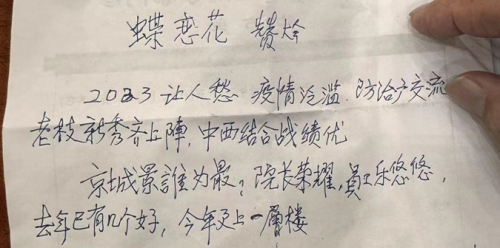 蝶恋花
2023让人愁 疫情泛滥.防治交流
老枝新秀齐上陣,中西结合战绩优
京城景誰为最?院长荣耀,員工乐悠悠,
去年已有几个好,今年更上一層楼